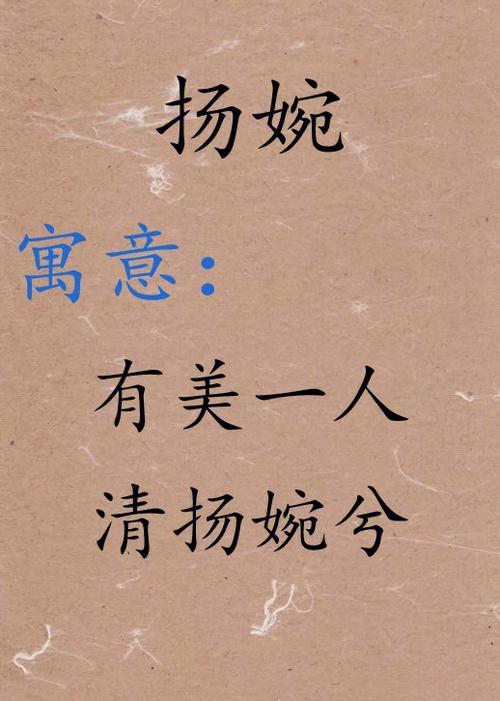 扬婉
寓意：
有美一人
清扬婉兮